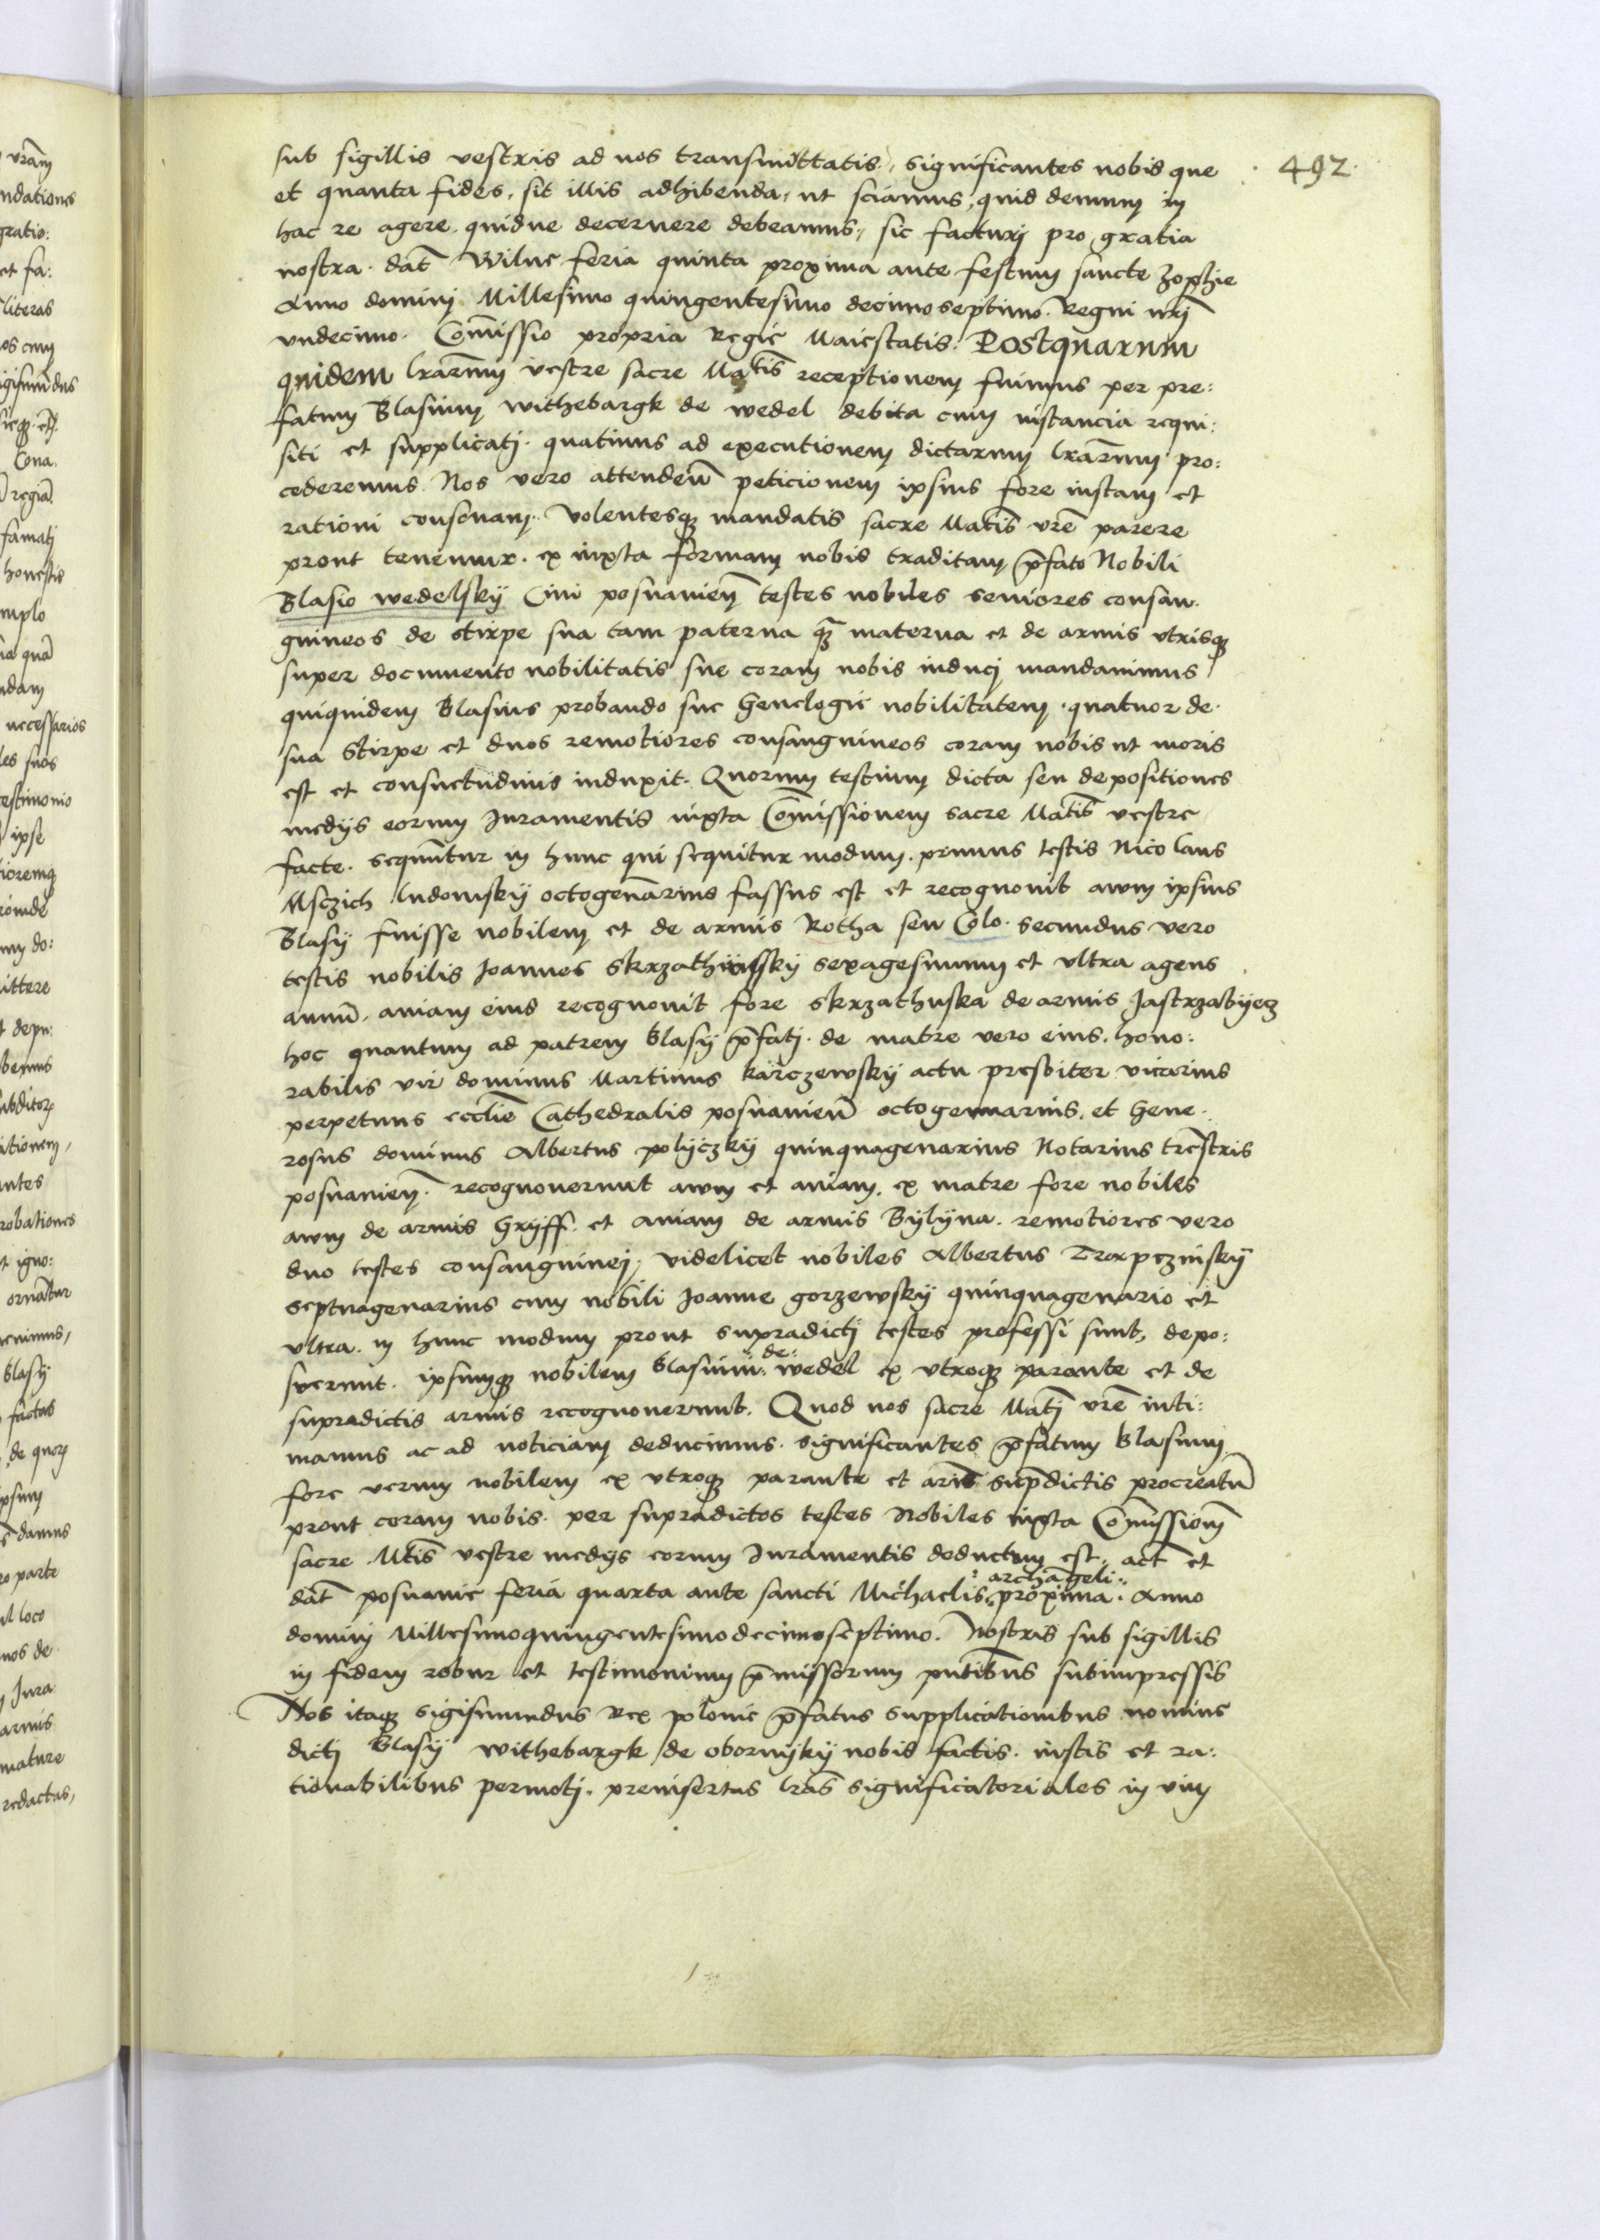 sub sigillis vestris ad nos transmittatis, significantes nobis que · 492 ·
et quanta fides, sit illis adhibenda, ut sciamus, quid demum in
hac re agere, quidue decernere debeamus, sic facturi pro gratia
nostra. dat̄ Wilne feria quinta proxima ante festum sancte Zophie
Anno domini Millesimo quingentesimo decimo septimo. Regni nr̄i
vndecimo. Com̄issio propria Regie Maiestatis. Postquarum
quidem lrārum vestre sacre Matis receptionem fuimus per pre:
fatum Blasium withebargk de wedel debita cum instancia requi:
siti et supplicati. quatinus ad executionem dictarum lrārum pro:
cederemus. Nos vero attenden̄ peticionem ipsius fore iustam et
rationi consonam. Volentesq mandatis sacre Matis vrē parere
prout tenemur. ex iuxta formam nobis traditam, p̄fato Nobili
Blasio wedelsky Ciui posnanien̄ testes nobiles seniores consan:
guineos de stirpe sua tam paterna q̄ materna et de armis vtrisq
super documento nobilitatis sue coram nobis induci mandauimus
quiquidem Blasius probando sue Genelogie nobilitatem. quatuor de
sua Stirpe et duos remotiores consanguineos coram nobis ut moris
est et consuetudinis induxit. Quorum testium dicta seu depositiones
medijs eorum Juramentis iuxta Com̄issionem sacre Matis vestre
facte. sequntur in hunc qui sequitur modum. primus testis Nicolaus
Msczich ludomsky octogenarius fassus est et recognouit auum ipsius
Blasij fuisse nobilem et de armis Rotha seu Colo. secundus vero
testis nobilis Joannes skrzathussky sexagesimum et vltra agens
annū. auiam eius recognouit fore skrzathuska de armis Jastrzabyecz
hoc quantum ad patrem Blasij p̄fati. de matre vero eius. hono:
rabilis vir dominus Martinus karczewsky actu presbiter vicarius
perpetuus eccl̄ie Cathedralis posnanien̄ octogennarius. et Gene:
rosus dominus Albertus polyczky quinquagenarius Notarius trēstris
posnanien̄. recognouerunt auum et auiam, ex matre fore nobiles
auum de armis Gryff. et auiam de armis Bylyna. remotiores vero
duo testes consanguinei, videlicet nobiles Albertus Trapczinsky
septuagenarius cum nobili Joanne gorzewsky quinquagenario et
vltra. in hunc modum prout supradicti testes professi sunt, depo:
suerunt. ipsumq nobilem Blasium de wedel ex vtroq parente et de
supradictis armis recognouerunt. Quod nos sacre Mati vrē inti:
mamus ac ad noticiam deducimus. significantes p̄fatum Blasium
fore verum nobilem ex vtroq parante et armis sup̄dictis procreatū
prout coram nobis. per supradictos testes Nobiles iuxta Com̄issionem
sacre Mtis vestre medijs eorum Juramentis deductum est. act̄ et
dat̄ posnanie feria quarta ante sancti Michaelis archāgeli proxima. Anno
domini Millesimoquingentesimodecimoseptimo. Nostris sub sigillis
in fidem robur et testimonium p̄missorum pn̄tibus subimpressis
Nos itaq sigismundus Rex polonie p̄fatus supplicationibus nomine
dicti Blasij withebargk de obornyky nobis factis. iustis et ra:
tionabilibus permoti. preinsertas lrās significatoriales in vim